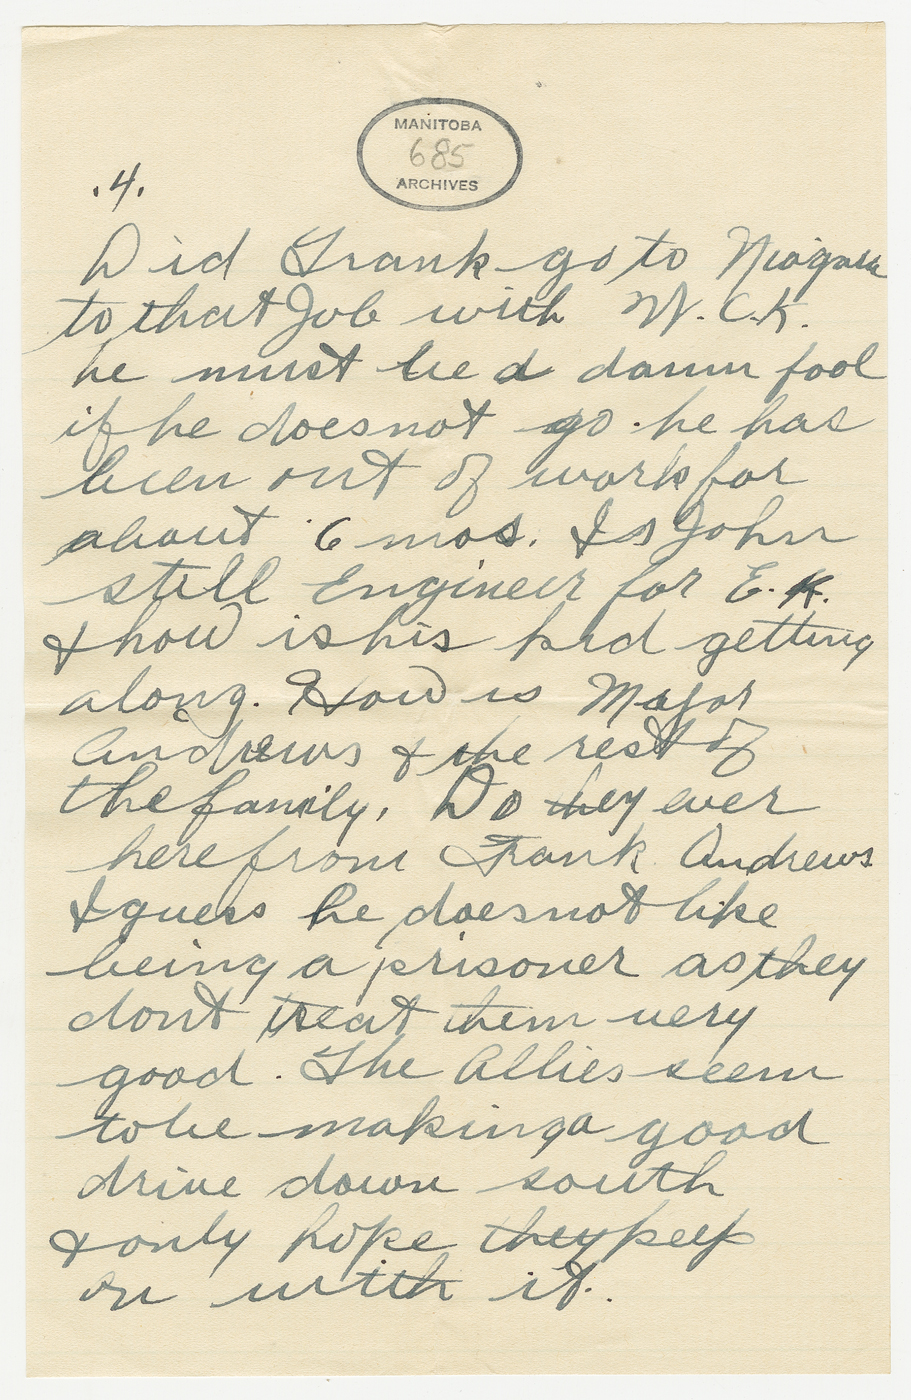 MANITOBA
685
ARCHIVES
.4.
Did Frank go to Niagara
to that Job with W.C.K.
he must be a damn fool
if he doesnot go. he has
been out of work for
about 6 mos. Is John
still Engineer for E.K.
& how is his kid getting
along. How is Major
Andrews & the rest of
the family, Do they ever
here from Frank Andrews
I guess he doesnot like
being a prisoner as they
dont treat them very
good. The Allies seem
to be making a good
drive down south
& only hope they keep
on with it.